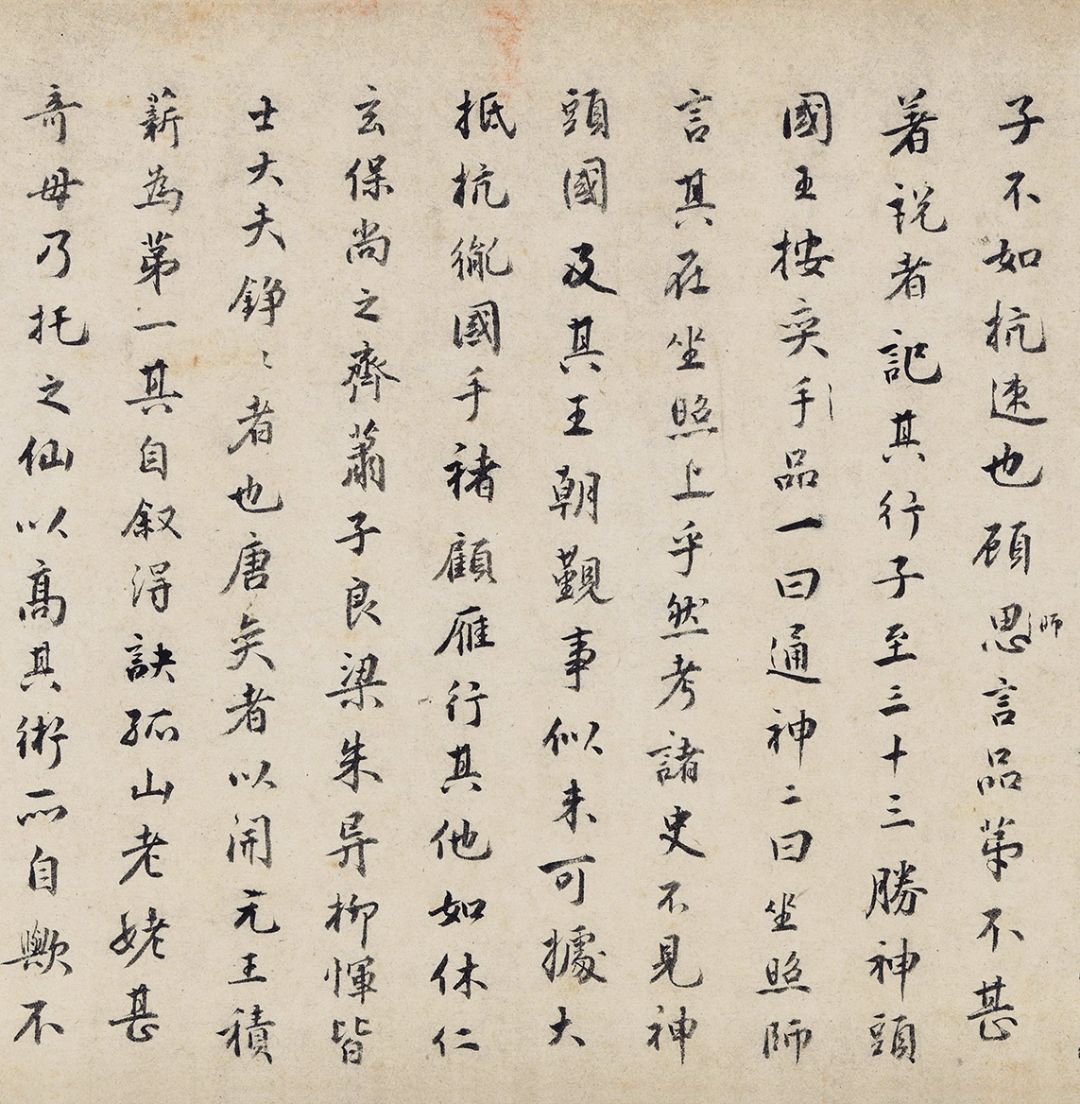 子不如杭速也顾師思言品苐不甚
著説者記其行子至三十三勝神頭
國王按奕手品一曰通神二曰坐照師
言其在坐照上乎然考諸史不見神
頭國及其王朝覲事似未可據大
抵杭胤國手褚顧雁行其他如休仁
玄保尚之齊蕭子良梁朱异柳惲皆
士大夫錚〻者也唐奕者以開元王積
薪為苐一其自叙得訣孤山老姥甚
奇毋乃托之仙以髙其術而自歟不